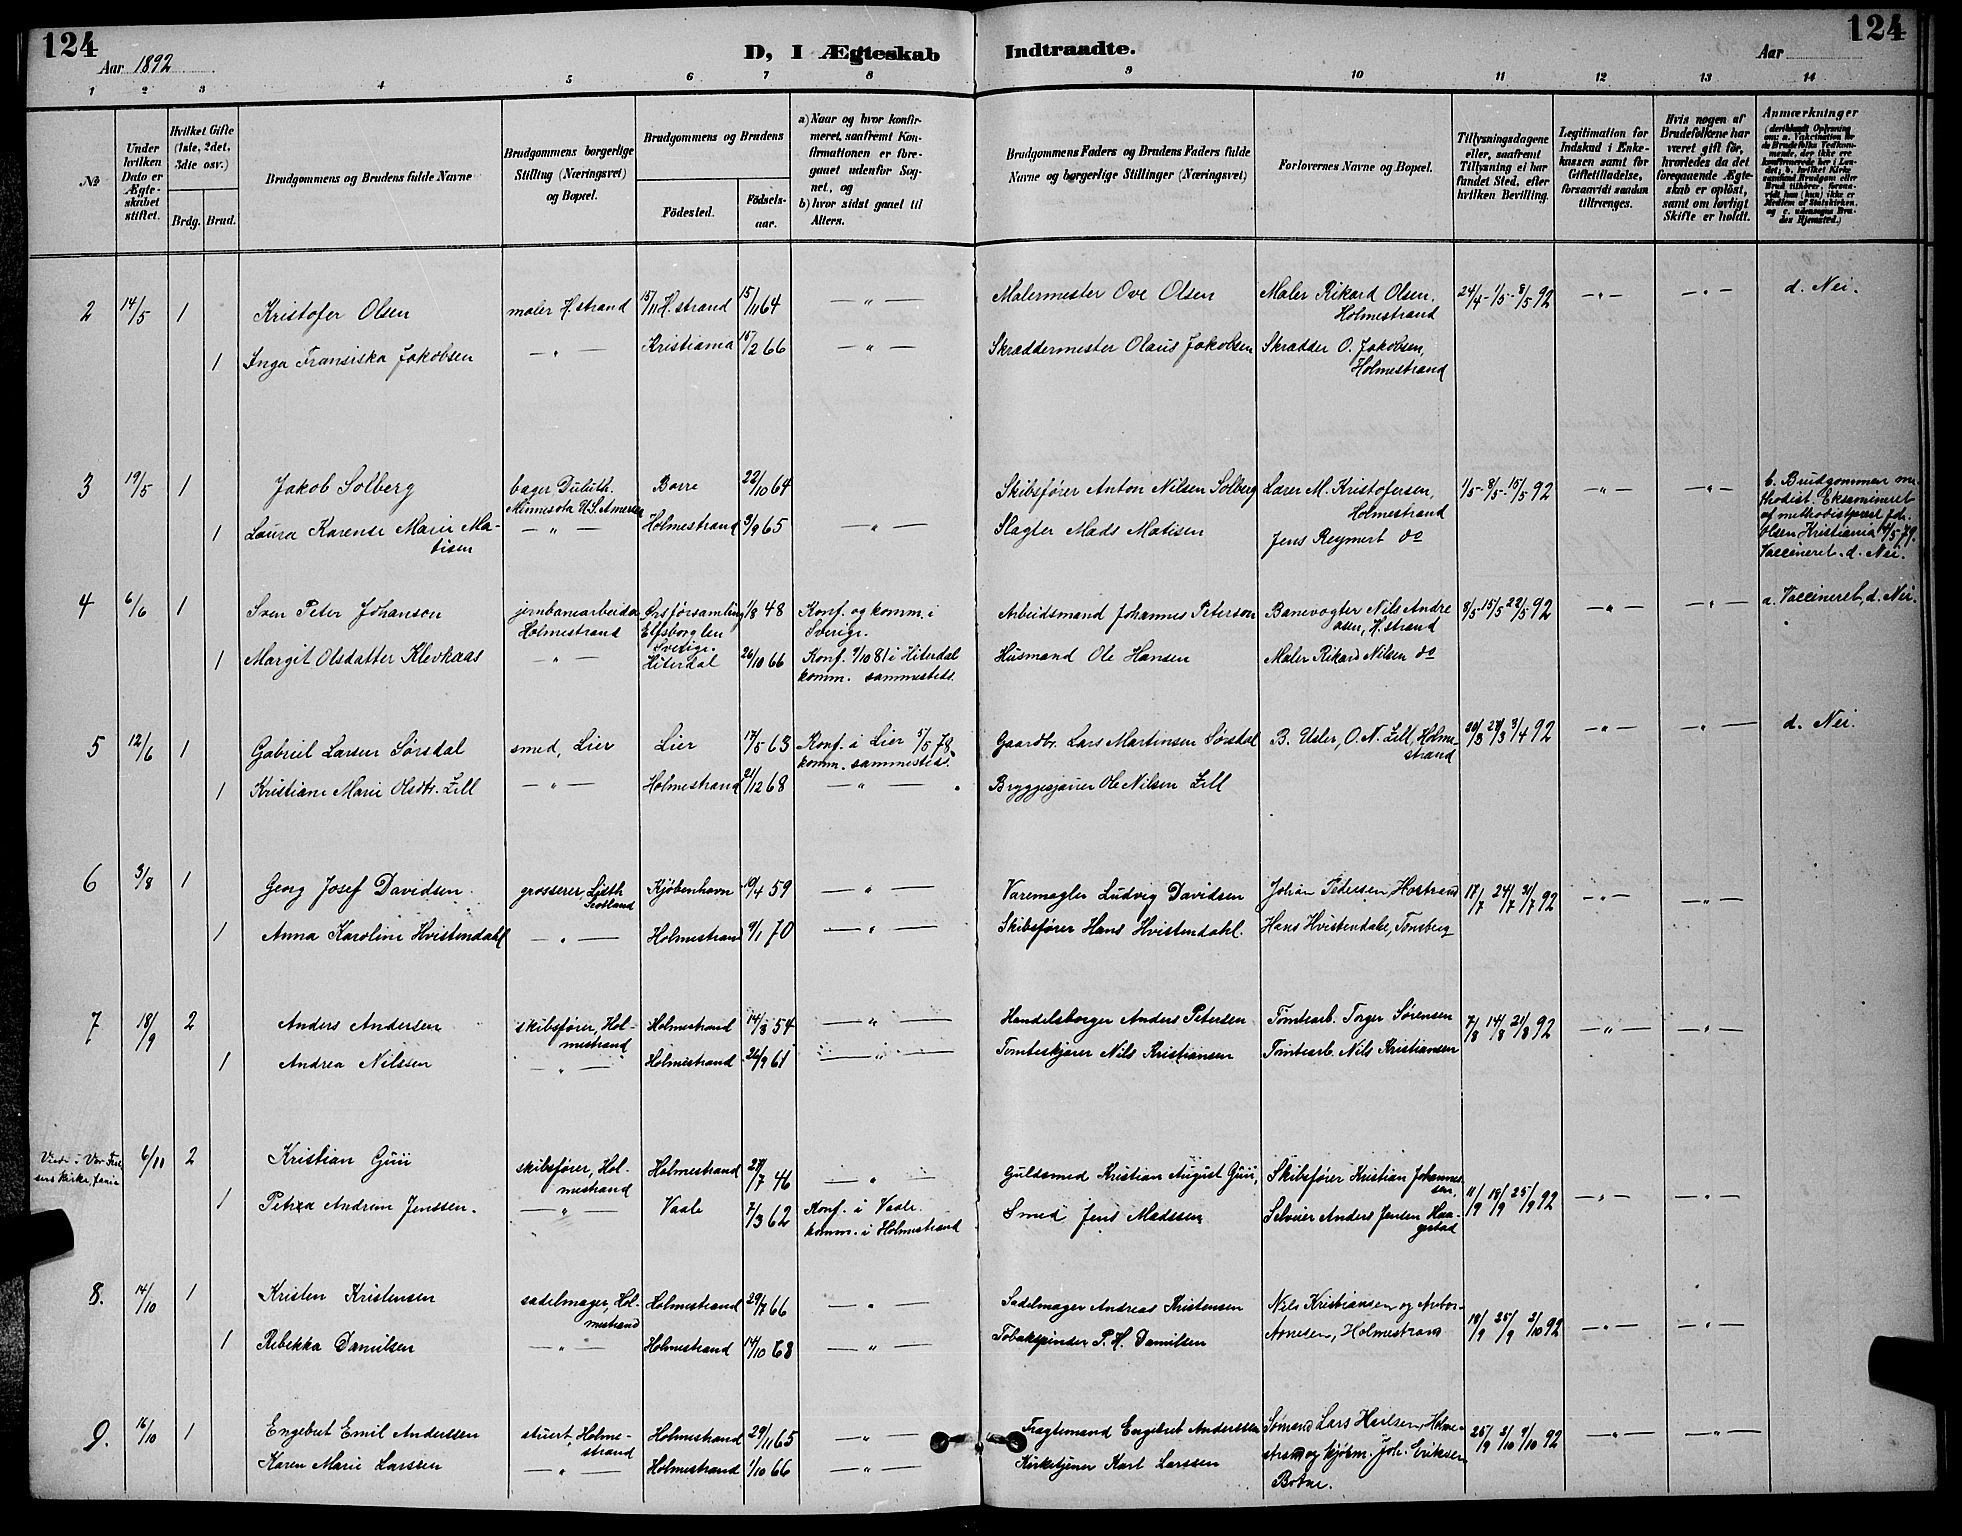 124
124
Aar 1892
D, I Ægteskab Indtraadte.
Aar
1 2 3 4 5 6 7 8 9 10 11 12 13 14
№
Under hvilken Dato er Ægteskabet stiftet.
Hvilket Gifte (1ste, 2det, 3die osv.)
Brdg. Brud.
Brudgommens og Brudens fulde Navne
Brudgommens borgerlige Stilling (Næringsvei) og Bopæl.
Brudgommens og Brudens
Födested.
Födselsaar.
a) Naar og hvor konfirmeret, saafremt Konfirmationen er foregaaet udenfor Sognet, og
b) hvor sidst gaaet til Alters.
Brudgommens Faders og Brudens Faders fulde Navne og borgerlige Stillinger (Næringsvei)
Forlovernes Navne og Bopæl.
Tillysningsdagene eller, saafremt Tillysning ei har fundet Sted, efter hvilken Bevilling.
Legitimation for Indskud i Enkekassen samt for Giftetilladelse, forsaavidt saadan tiltrænges.
Hvis nogen af Brudefolkene har været gift för, hvorledes da det foregaaende Ægteskab er oplöst, samt om lovligt Skifte er holdt.
Anmærkninger
2 14/5 1 Kristofer Olsen maler H.strand 15/11 H.strand 15/11 64 — " — Malermester Ove Olsen Maler Rikard Olsen, Holmestrand 24/4 - 1/5 - 8/5 92 — " — — " — d. Nei.
1 Inga Fransiska Jakobsen — " — Kristiania 15/2 66 — " — Skræddermester Olaus Jakobsen Skrædder O. Jakobsen, Holmestrand
3 19/5 1 Jakob Solberg bager Duluth. Minnesota U.S. Amerika Borre 22/10 64 Skibsfører Anton Nilsen Solberg Lærer M. Kristofersen, Holmestrand 1/5 - 8/5 - 15/5 92 — " — — " — b. Brudgommen methodist. Eksamineret af methodistpræst Olsen Kristiania 79. Vaccineret. d. Nei.
1 Laura Karense Marie Matisen — " — Holmestrand 3/9 65 — " — Slagter Mads Matisen Jens Reymert do
4 6/6 1 Sven Peter Johanson jernbanearbeider Holmestrand Ørsførsamling Elfsborg len Sverige. 1/8 48 Konf. og komm. i Sverige. Arbeidsmand Johannes Peterson Banevogter Nils Andreasen, H.strand 8/5 15/5 22/5 92 — " — — " — a. Vaccineret, d. Nei.
1 Margit Olsdatter Klevkaas — " — Hiterdal 26/10 66 Konf. 9/10 81 i Hiterdal komm. sammesteds. Husmand Ole Hansen Maler Rikard Nilsen do
5 12/6 1 Gabriel Larsen Sørsdal smed, Lier Lier 17/5 63 Konf. i Lier 5/5 78. komm. sammesteds. Gaardbr. Lars Martinsen Sørsdal B. Usler, O. N. Lill, Holmestrand 20/3 27/3 3/4 92 — " — — " — d. Nei.
1 Kristiane Marie Olsdtr. Lill — " — Holmestrand 21/12 68 — " — Bryggesjauer Ole Nilsen Lill
6 3/8 1 Georg Josef Davidsen grosserer, Leith Scotland Kjøbenhavn 10/4 59 — " — Varemægler Ludvig Davidsen Johan Pedersen, H.strand 17/7 24/7 31/7 92 — " — — " —
1 Anna Karoline Hvistendahl — " — Holmestrand 9/1 70 — " — Skibsfører Hans Hvistendahl. Hans Hvistendahl, Tønsberg
7 18/9 2 Anders Andersen skibsfører, Holmestrand Holmestrand 14/8 54 — " — Handelsborger Anders Petersen Tomtearb. Torger Sørensen 7/8 14/8 21/8 92 — " — — " —
1 Andrea Nilssen — " — Holmestrand 26/9 61 — " — Tomteskjærer Nils Kristiansen Tomtearb. Nils Kristiansen
Viet i Vor Frelsers Kirke, 6/11 2 Kristian Güii skibsfører, Holmestrand Holmestrand 27/7 46 — " — Guldsmed Kristian August Güii, Skibsfører Kristian Johannessen, 11/9 18/9 25/9 92 — " — — " —
1 Petrea Andrine Jenssen. — " — Vaale 7/3 62 Konf. i Vaale. komm. i Holmestrand Smed Jens Madssen Selveier Anders Jensen Haagestad
8. 14/10 1 Kristen Kristensen sadelmager, Holmestrand Holmestrand 29/7 66 — " — Sadelmager Andreas Kristensen Nils Kristiansen og 18/9 25/9 2/10 92 — " — — " —
1 Rebekka Danielsen — " — Holmestrand 14/10 68 — " — Tobakspinder P. H. Danielsen Arnesen, Holmestrand
9. 16/10 1 Engebret Emil Anderssen stuert, Holmestrand Holmestrand 29/11 65 — " — Fragtemand Engebret Anderssen Sømand Lars Holmestrand og kjøbm. Joh. Eriksen Botne. 25/9 2/10 9/10 92 — " — — " —
Karen Marie Larssen — " — Holmestrand 1/10 66 — " — Kirketjener Karl Larssen